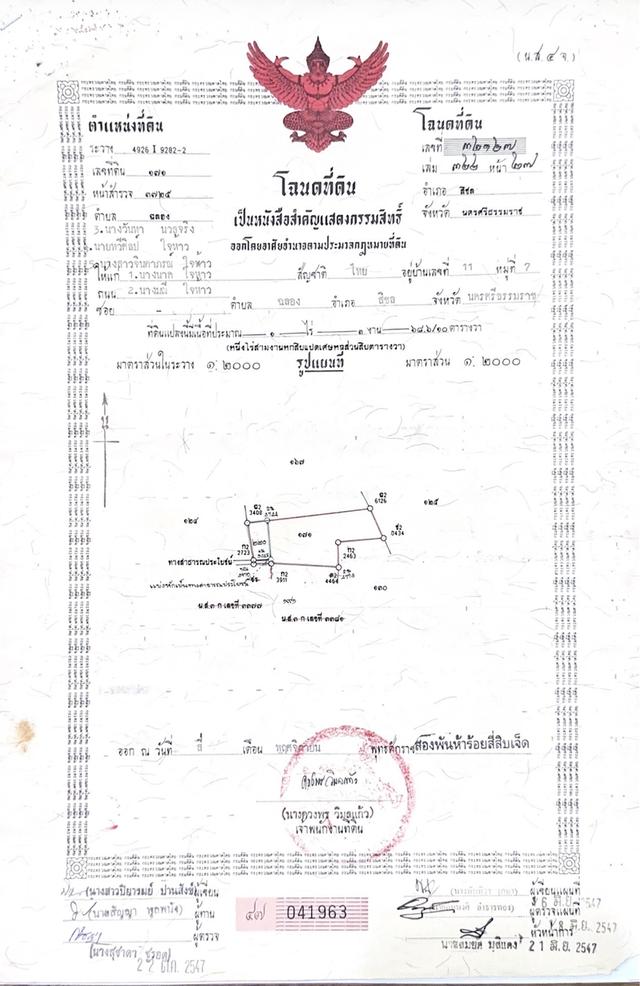 (น.ส.๔ จ.)
ตำแหน่งที่ดิน
ระวาง 4926 I 9282-2
เลขที่ดิน ๑๗๑
หน้าสำรวจ ๓๗๒๕
ตำบล ฉลอง
โฉนดที่ดิน
เลขที่ ๓๒๑๒๗
เล่ม ๓๒๒ หน้า ๒๗
อำเภอ สิชล
จังหวัด นครศรีธรรมราช
โฉนดที่ดิน
เป็นหนังสือสำคัญแสดงกรรมสิทธิ์
ออกโดยอาศัยอำนาจตามประมวลกฎหมายที่ดิน
ให้แก่ 1.นางนาค ใจห้าว สัญชาติ ไทย อยู่บ้านเลขที่ 11 หมู่ที่ 7
ถนน 2.นางมณี ใจห้าว
ซอย - ตำบล ฉลอง อำเภอ สิชล จังหวัด นครศรีธรรมราช
ที่ดินแปลงนี้มีเนื้อที่ประมาณ ๑ ไร่ ๓ งาน ๖๘.๖/๑๐ ตารางวา
(หนึ่งไร่สามงานหกสิบแปดเศษหกส่วนสิบตารางวา)
มาตราส่วนในระวาง ๑:๒๐๐๐ รูปแผนที่ มาตราส่วน ๑:๒๐๐๐
๑๖๗
๑๒๕
๑๒๔
๑๗๑
6126
3408
0434
2723
2463
3911
4464
ทางสาธารณประโยชน์
แบ่งหักเป็นทางสาธารณประโยชน์
๑๓๐
น.ส.๓ ก เลขที่ ๓๓๗๗
น.ส.๓ ก เลขที่ ๓๓๘๑
ออก ณ วันที่ สี่ เดือน พฤศจิกายน พุทธศักราช สองพันห้าร้อยสี่สิบเจ็ด
(นางดวงพร วิมลแก้ว)
เจ้าพนักงานที่ดิน
ผู้เขียน
ผู้ทาน
ผู้ตรวจ
2547
๔๗ 041963
ผู้เขียนแผนที่
ผู้ตรวจแผนที่
หัวหน้าการ
21 มิ.ย. 2547